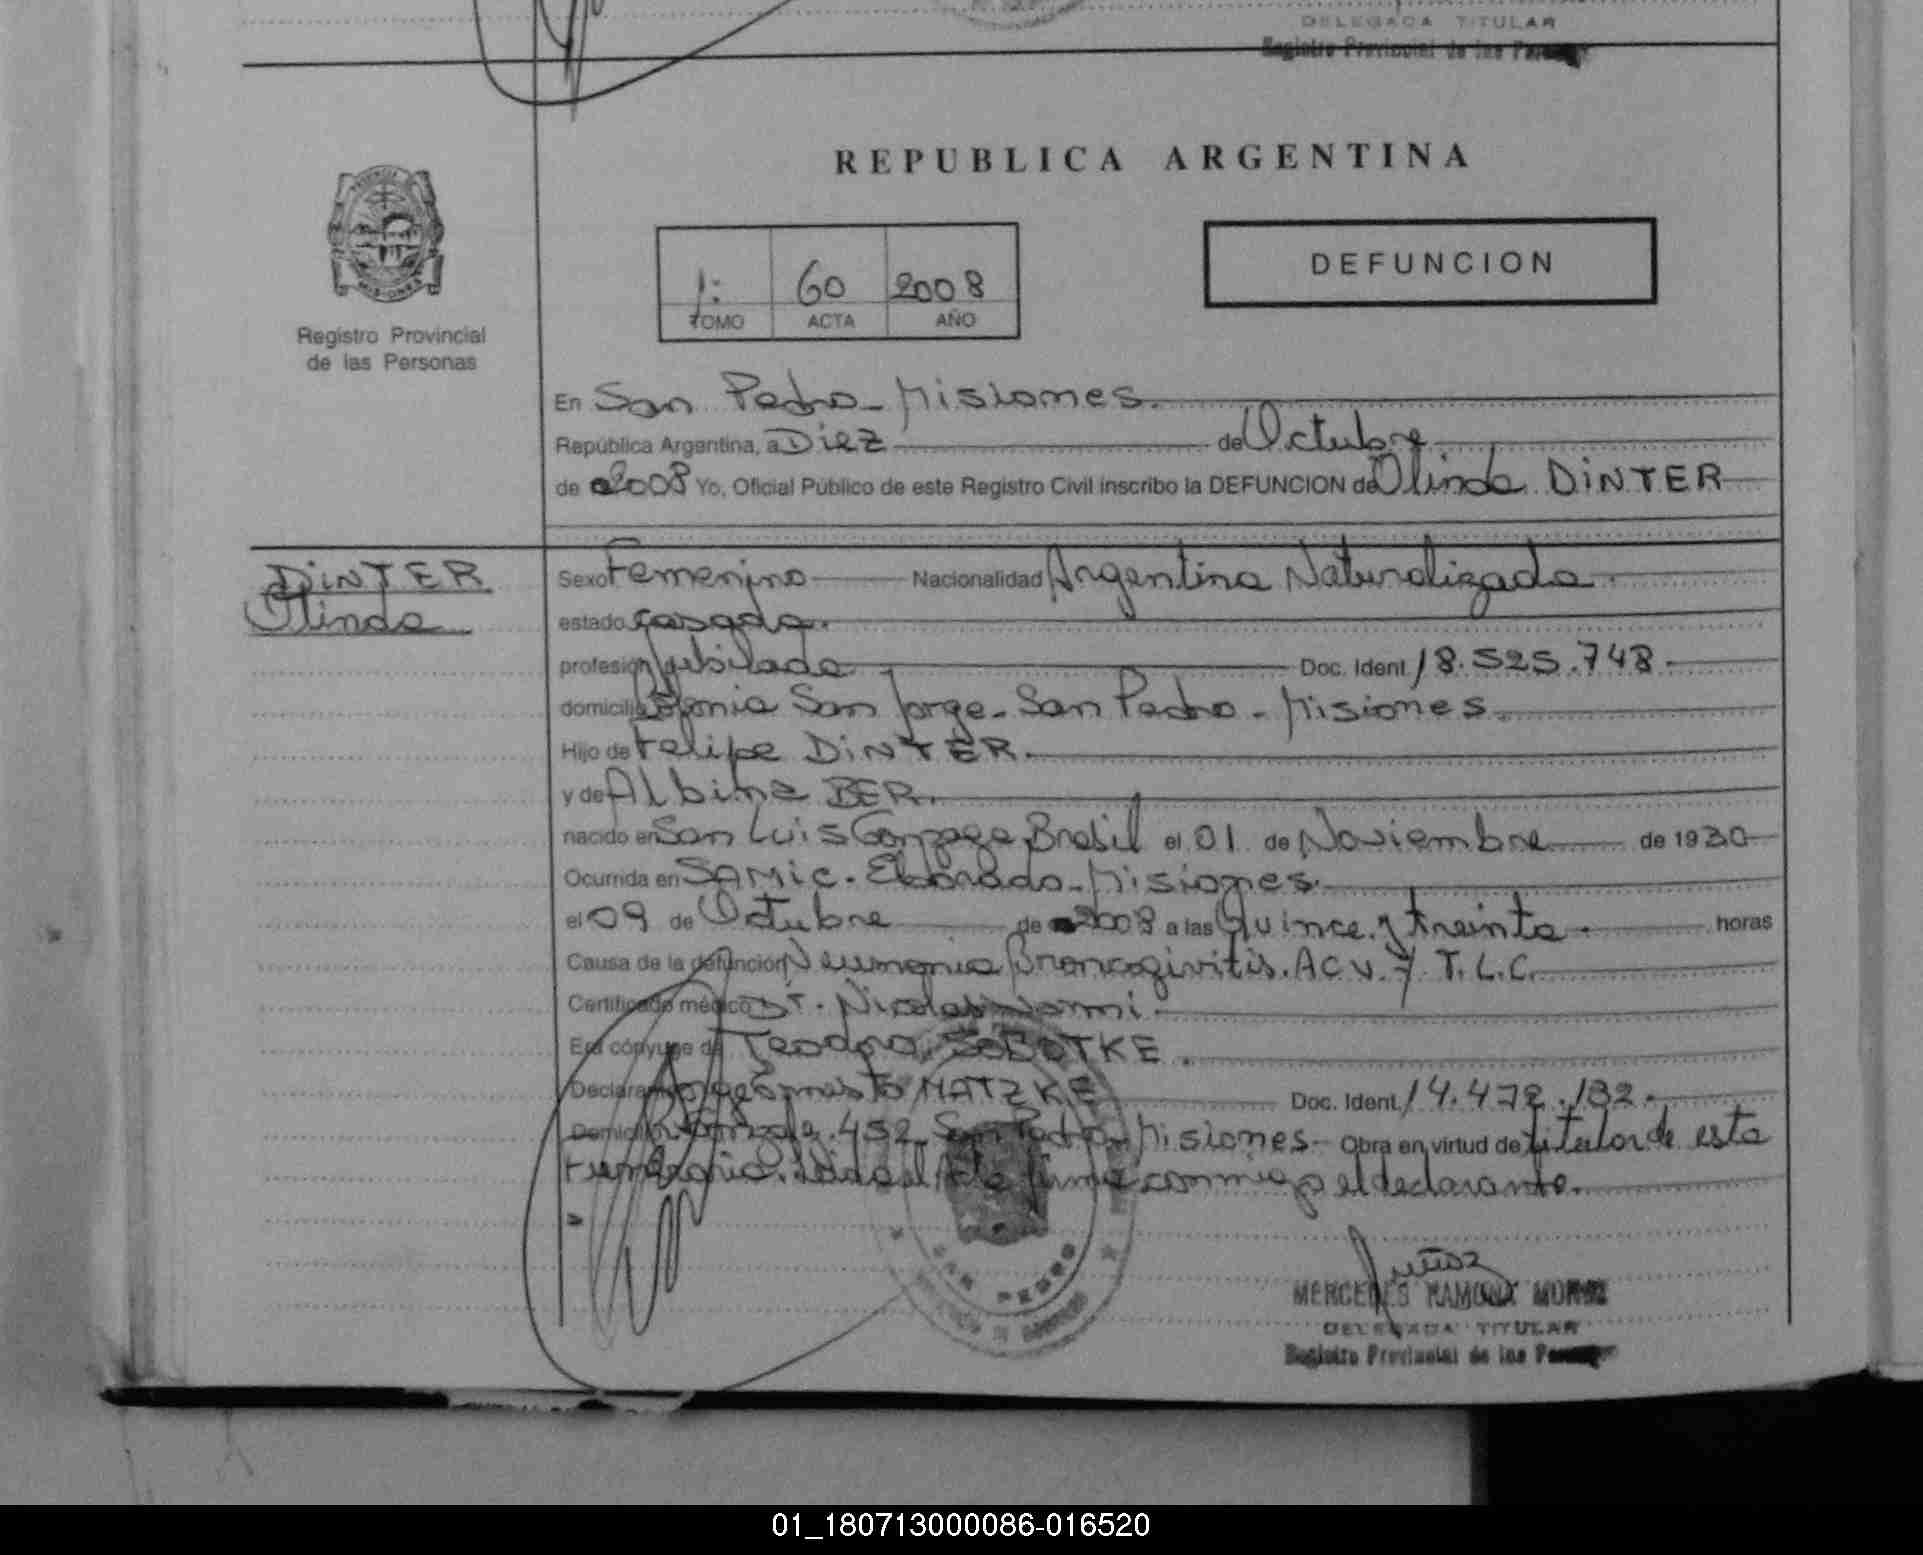 DELEGADA TITULAR
Registro Provincial de las
REPUBLICA ARGENTINA
1: 60 2008
TOMO ACTA AÑO
DEFUNCION
MISIONES
Registro Provincial
de las Personas
En San Pedro - Misiones.
República Argentina, a Diez de Octubre
de 2008 Yo, Oficial Público de este Registro Civil inscribo la DEFUNCION de Olinda DINTER
DINTER
Olinda
Sexo Femenino Nacionalidad Argentina Naturalizada
estado casada.
profesión Jubilada Doc. Ident. 18.525.748.
domicilio Colonia San Jorge - San Pedro - Misiones.
Hijo de Felipe DINTER.
y de Albina BER.
nacido en San Luis Gonzaga Brasil el 01 de Noviembre de 1930
Ocurrida en SAMIC. Eldorado - Misiones.
el 09 de Octubre de 2008 a las Quince y treinta. horas
Causa de la defunción Neumonia A.C.V. y T.L.C.
Certificado médico Dr. Nicolas
Era cónyuge de Teodoro SOBOTKE.
Declarante Jorge Ernesto MATZKE Doc. Ident. 14.472.132.
Domicilio 452 San Pedro - Misiones Obra en virtud de titular de esta
Funeraria. Leida el Acta firma conmigo el declarante.
SAN PEDRO
Muñoz
MERCEDES RAMONA MUÑOZ
DELEGADA TITULAR
Registro Provincial de las
01_180713000086-016520